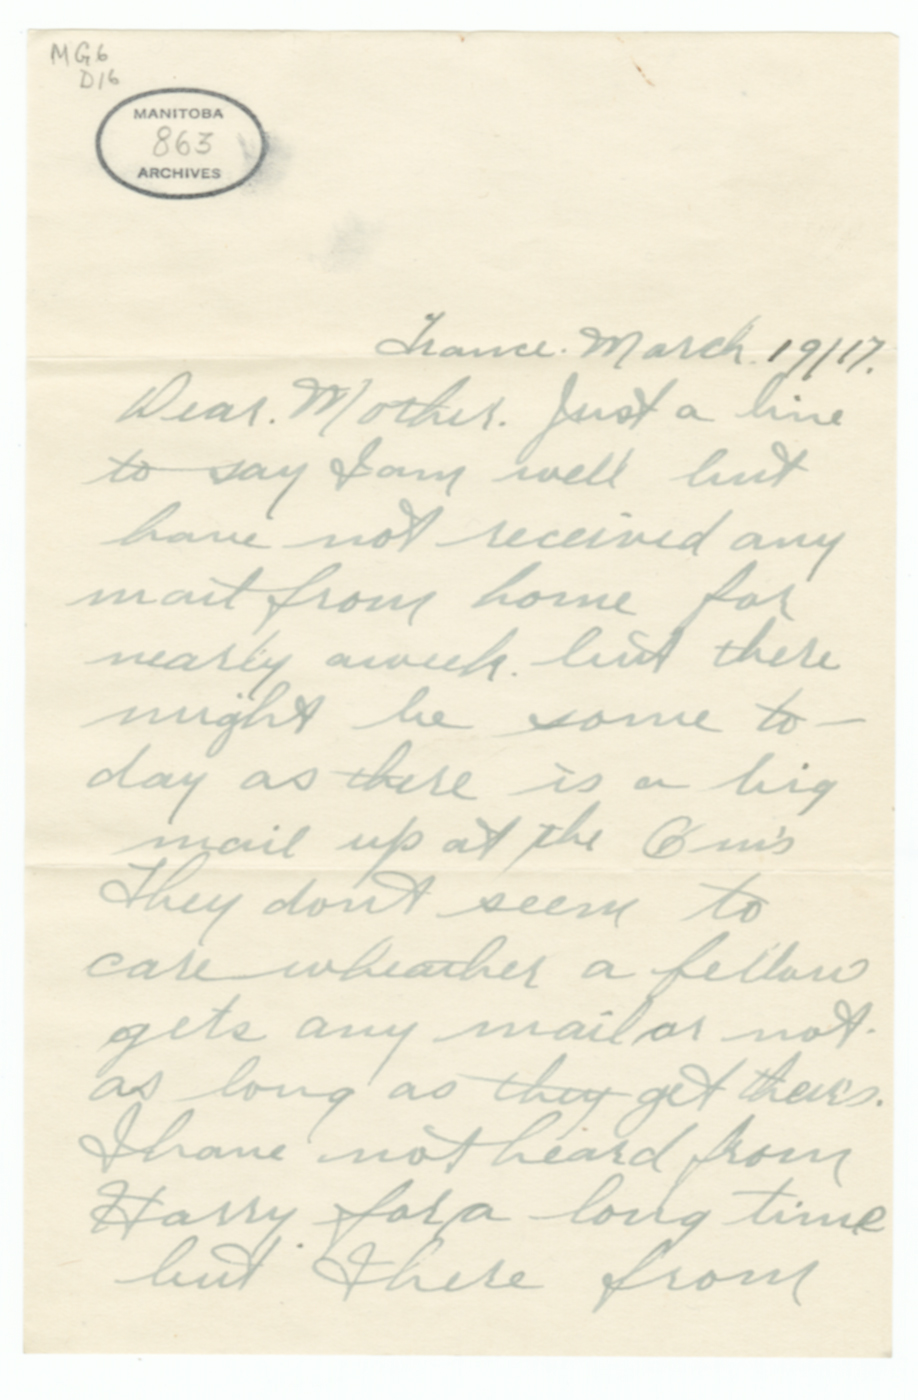 MG6
D16
MANITOBA
863
ARCHIVES
France. March. 19/17.
Dear. Mother. Just a line
to say I am well but
have not received any
mail from home for
nearly a week. but there
might be some to-
day as there is a big
mail up at the
They don't seem to
care wheather a fellow
gets any mail or not.
as long as they get theirs.
I have not heard from
Harry. for a long time
but I here from